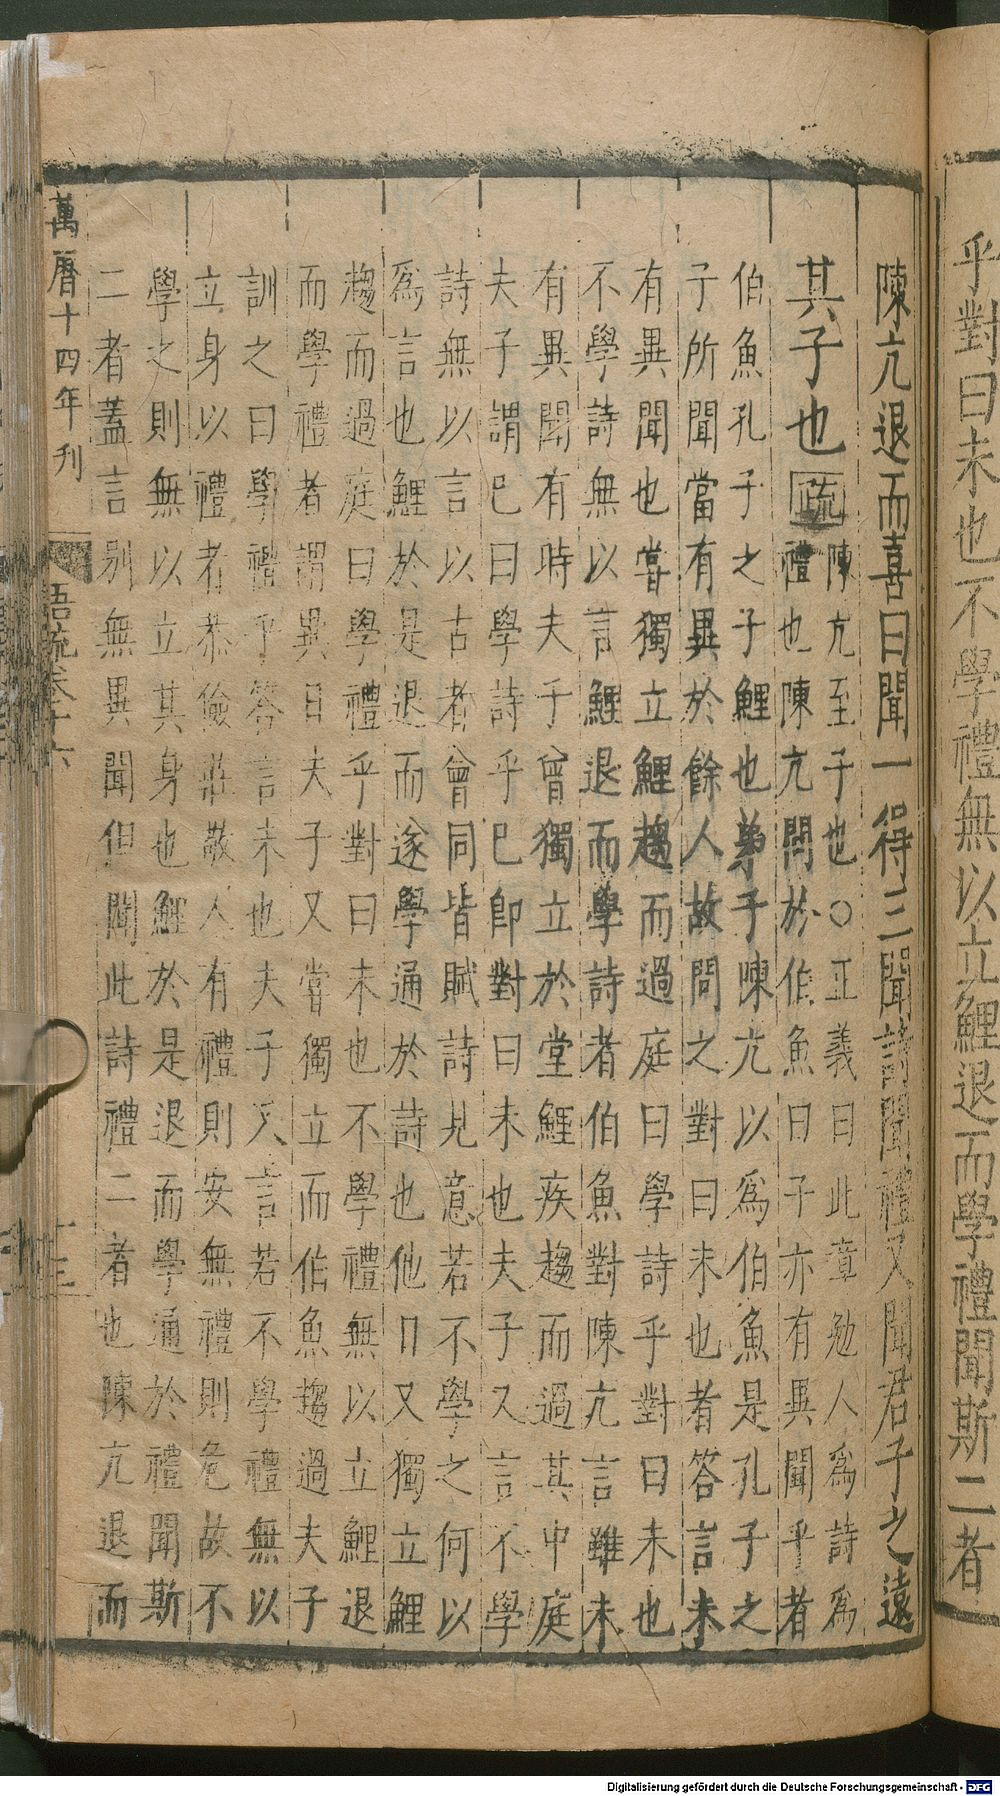 乎對曰未也不學禮無以立鯉退而學禮聞斯二者
陳亢退而喜曰聞一得三聞詩聞禮又聞君子之遠
其子也疏
陳亢至子也○正義曰此章勉人爲詩爲
禮也陳亢問於伯魚曰子亦有異聞乎者
伯魚孔子之子鯉也弟子陳亢以爲伯魚是孔子之
子所聞當有異於餘人故問之對曰未也者答言未
有異聞也嘗獨立鯉趨而過庭曰學詩乎對曰未也
不學詩無以言鯉退而學詩者伯魚對陳亢言雖未
有異聞有時夫子曾獨立於堂鯉疾趨而過其中庭
夫子謂已曰學詩乎已即對曰未也夫子又言不學
詩無以言以古者會同皆賦詩見意若不學之何以
爲言也鯉於是退而遂學通於詩也他日又獨立鯉
趨而過庭曰學禮乎對曰未也不學禮無以立鯉退
而學禮者謂異日夫子又嘗獨立而伯魚趨過夫子
訓之曰學禮乎答言未也夫子又言若不學禮無以
立身以禮者恭儉莊敬人有禮則安無禮則危故不
學之則無以立其身也鯉於是退而學通於禮聞斯
二者蓋言别無異聞但聞此詩禮二者也陳亢退而
萬曆十四年刊
語疏卷十六
十三
Digitalisierung gefördert durch die Deutsche Forschungsgemeinschaft - DFG